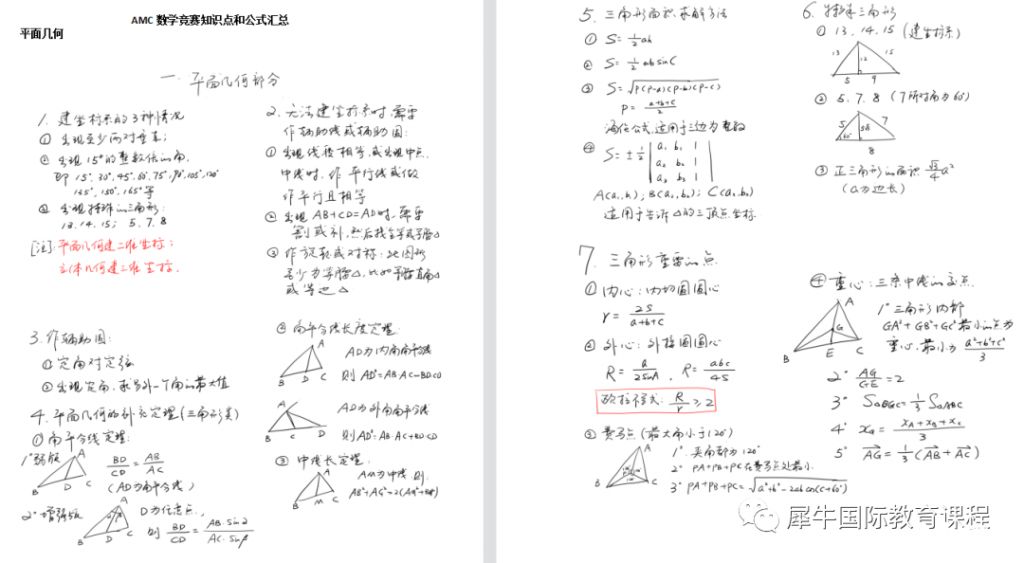 AMC 数学竞赛知识点和公式汇总
平面几何
一 平面几何部分
1. 建坐标系的3种情况
① 出现至少两对垂直;
② 出现15°的整数倍的角,
即 15°, 30°, 45°, 60°, 75°, 90°, 105°, 120°
135°, 150°, 165°等
③ 出现特殊的三角形:
13, 14, 15; 5, 7, 8
[注]: 平面几何建二维坐标;
立体几何建三维坐标.
2. 无法建坐标系时, 需要
作辅助线或辅助圆:
① 出现线段相等, 或出现中点,
中线时, 作平行线或做
作平行且相等
② 出现 AB+CD=AD时, 需要
割或补, 然后找全等或等腰△
③ 作旋转或对称: 此图形
至少为等腰△, 比如等腰直角△
或等边△
3. 作辅助圆:
① 定角对定弦
② 出现定角, 求另外一个角的最大值
4. 平面几何的补充定理(三角形类)
① 角平分线定理:
1° 弱版
A
B D C
BD/CD = AB/AC
(AD为角平分线)
2° 增强版
A
B D C
D为任意点,
则 BD/CD = AB·sinα/AC·sinβ
② 角平分线长度定理:
A
B D C
AD为内角角平分线
则 AD²=AB·AC-BD·CD
A
B C D
AD为外角角平分线
则 AD²=-AB·AC+BD·CD
③ 中线长定理:
A
B M C
AM为中线 则
AB²+AC²=2(AM²+BM²)
5. 三角形面积求解方法
① S=½ah
② S=½absinC
③ S=√P(P-a)(P-b)(P-c)
P=(a+b+c)/2
海伦公式, 适用于三边为整数
④ S=±½ |a₁ b₁ 1|
|a₂ b₂ 1|
|a₃ b₃ 1|
A(a₁,b₁); B(a₂,b₂); C(a₃,b₃)
适用于告诉△的三顶点坐标
6. 特殊三角形
① 13, 14, 15 (建坐标系)
13 12 15
5 9
② 5, 7, 8 (7所对角为60°)
5 7
60°
8
③ 正三角形的面积 √3/4 a²
(a为边长)
7. 三角形重要的点
① 内心: 内切圆圆心
r=2S/(a+b+c)
② 外心: 外接圆圆心
R=a/2sinA, R=abc/4S
欧拉不等式: R/r ≥2
③ 费马点 (最大角小于120°)
A
B C
1° 夹角都为120°
2° PA+PB+PC在费马点处最小
3° PA+PB+PC=√a²+b²-2abcos(C+60°)
④ 重心: 三条中线的交点
A
G
B E C
1° 三角形内部
GA²+GB²+GC²最小的点为
重心, 最小为 (a²+b²+c²)/3
2° AG/GE=2
3° S△BGC=⅓S△ABC
4° x_G=(x_A+x_B+x_C)/3
5° AG=⅓(AB+AC)
犀牛国际教育课程